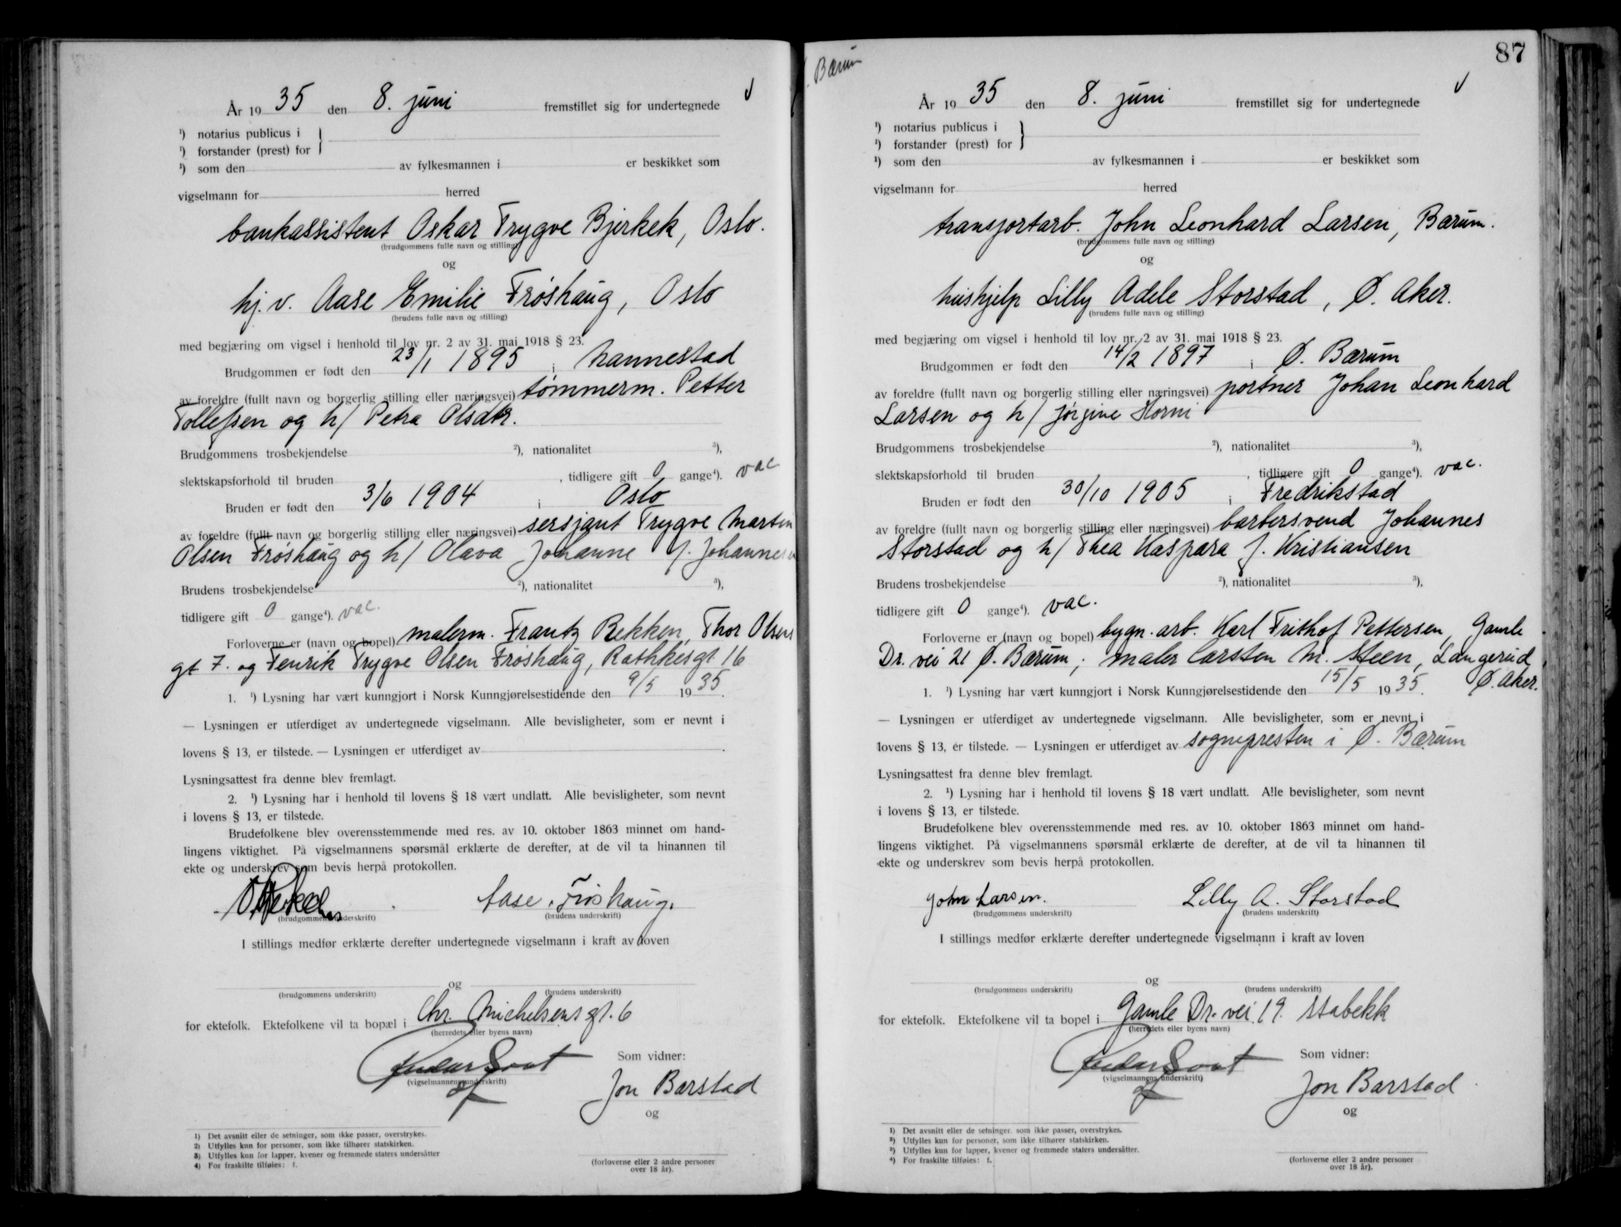 År 1935 den 8. juni fremstillet sig for undertegnede
¹) notarius publicus i
¹) forstander (prest) for
¹) som den av fylkesmannen i er beskikket som
vigselmann for herred
bankassistent Oskar Trygve Bjerkek, Oslo.
(brudgommens fulle navn og stilling)
og
hj. v. Aase Emilie Frøshaug, Oslo
(brudens fulle navn og stilling)
med begjæring om vigsel i henhold til lov nr. 2 av 31. mai 1918 § 23.
Brudgommen er født den 23/1 1895 i Hannestad
av foreldre (fullt navn og borgerlig stilling eller næringsvei) tømmerm. Petter
Tollefsen og h/ Petra Olsdtr.
Brudgommens trosbekjendelse ²), nationalitet ³),
slektskapsforhold til bruden , tidligere gift 0 gange⁴). vac
Bruden er født den 3/6 1904 i Oslo
av foreldre (fullt navn og borgerlig stilling eller næringsvei) sersjant Trygve Martin
Olsen Frøshaug og h/ Olava Johanne f. Johannesen
Brudens trosbekjendelse ²), nationalitet ³),
tidligere gift 0 gange⁴). vac.
Forloverne er (navn og bopel) malerm. Frantz Rekken, Thor Olsens
gt 7. og Fenrik Trygve Olsen Frøshaug, Rathkesgt 16
1. ¹) Lysning har vært kunngjort i Norsk Kunngjørelsestidende den 9/5 1935.
— Lysningen er utferdiget av undertegnede vigselmann. Alle bevisligheter, som er nevnt i
lovens § 13, er tilstede. — Lysningen er utferdiget av
Lysningsattest fra denne blev fremlagt.
2. ¹) Lysning har i henhold til lovens § 18 vært undlatt. Alle bevisligheter, som nevnt
i lovens § 13, er tilstede.
Brudefolkene blev overensstemmende med res. av 10. oktober 1863 minnet om hand-
lingens viktighet. På vigselmannens spørsmål erklærte de derefter, at de vil ta hinannen til
ekte og underskrev som bevis herpå protokollen.
Aase Frøshaug.
(brudgommens underskrift) (brudens underskrift)
I stillings medfør erklærte derefter undertegnede vigselmann i kraft av loven
og
(brudgommens underskrift) (brudens underskrift)
for ektefolk. Ektefolkene vil ta bopæl i Chr. Michelsens gt. 6
(herredets eller byens navn)
Som vidner:
(vigselmannens underskrift)
Jon Barstad
og
1) Det avsnitt eller de setninger, som ikke passer, overstrykes.
2) Utfylles kun for personer, som ikke tilhører statskirken.
3) Utfylles kun for lapper, kvener og fremmede staters undersåtter
4) For fraskilte tilføies: f.
(forloverne eller 2 andre personer
over 18 år).
Bærum
87
År 1935 den 8. juni fremstillet sig for undertegnede
¹) notarius publicus i
¹) forstander (prest) for
¹) som den av fylkesmannen i er beskikket som
vigselmann for herred
transportarb. John Leonhard Larsen, Bærum.
(brudgommens fulle navn og stilling)
og
hushjelp Lilly Adele Storstad, Ø. Aker.
(brudens fulle navn og stilling)
med begjæring om vigsel i henhold til lov nr. 2 av 31. mai 1918 § 23.
Brudgommen er født den 14/2 1897 i Ø. Bærum
av foreldre (fullt navn og borgerlig stilling eller næringsvei) portner Johan Leonhard
Larsen og h/ Jørgine Horni
Brudgommens trosbekjendelse ²), nationalitet ³),
slektskapsforhold til bruden , tidligere gift 0 gange⁴). vac.
Bruden er født den 30/10 1905 i Fredrikstad
av foreldre (fullt navn og borgerlig stilling eller næringsvei) barbersvend Johannes
Storstad og h/ Thea Kaspara f. Kristiansen
Brudens trosbekjendelse ²), nationalitet ³),
tidligere gift 0 gange⁴). vac.
Forloverne er (navn og bopel) bygn. arb. Karl Frithof Pettersen, Gamle
Dr. vei 21 Ø. Bærum; maler Carsten M. Steen, Langerud,
Ø. Aker.
1. ¹) Lysning har vært kunngjort i Norsk Kunngjørelsestidende den 15/5 1935.
— Lysningen er utferdiget av undertegnede vigselmann. Alle bevisligheter, som er nevnt i
lovens § 13, er tilstede. — Lysningen er utferdiget av sognepresten i Ø. Bærum
Lysningsattest fra denne blev fremlagt.
2. ¹) Lysning har i henhold til lovens § 18 vært undlatt. Alle bevisligheter, som nevnt
i lovens § 13, er tilstede.
Brudefolkene blev overensstemmende med res. av 10. oktober 1863 minnet om hand-
lingens viktighet. På vigselmannens spørsmål erklærte de derefter, at de vil ta hinannen til
ekte og underskrev som bevis herpå protokollen.
John Larsen. Lilly A. Storstad
(brudgommens underskrift) (brudens underskrift)
I stillings medfør erklærte derefter undertegnede vigselmann i kraft av loven
og
(brudgommens underskrift) (brudens underskrift)
for ektefolk. Ektefolkene vil ta bopel i Gamle Dr. vei 19. Stabekk
(herredets eller byens navn)
Som vidner:
(vigselmannens underskrift)
Jon Barstad
og
1) Det avsnitt eller de setninger, som ikke passer, overstrykes.
²) Utfylles kun for personer, som ikke tilhører statskirken.
³) Utfylles kun for lapper, kvener og fremmede staters undersåtter.
⁴) For fraskilte tilføies: f.
(forloverne eller 2 andre personer
over 18 år).